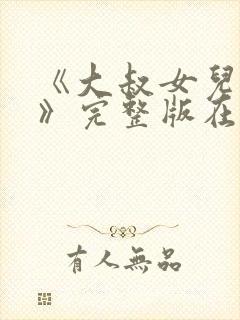 《大叔女兒
》完整版在
有人無品